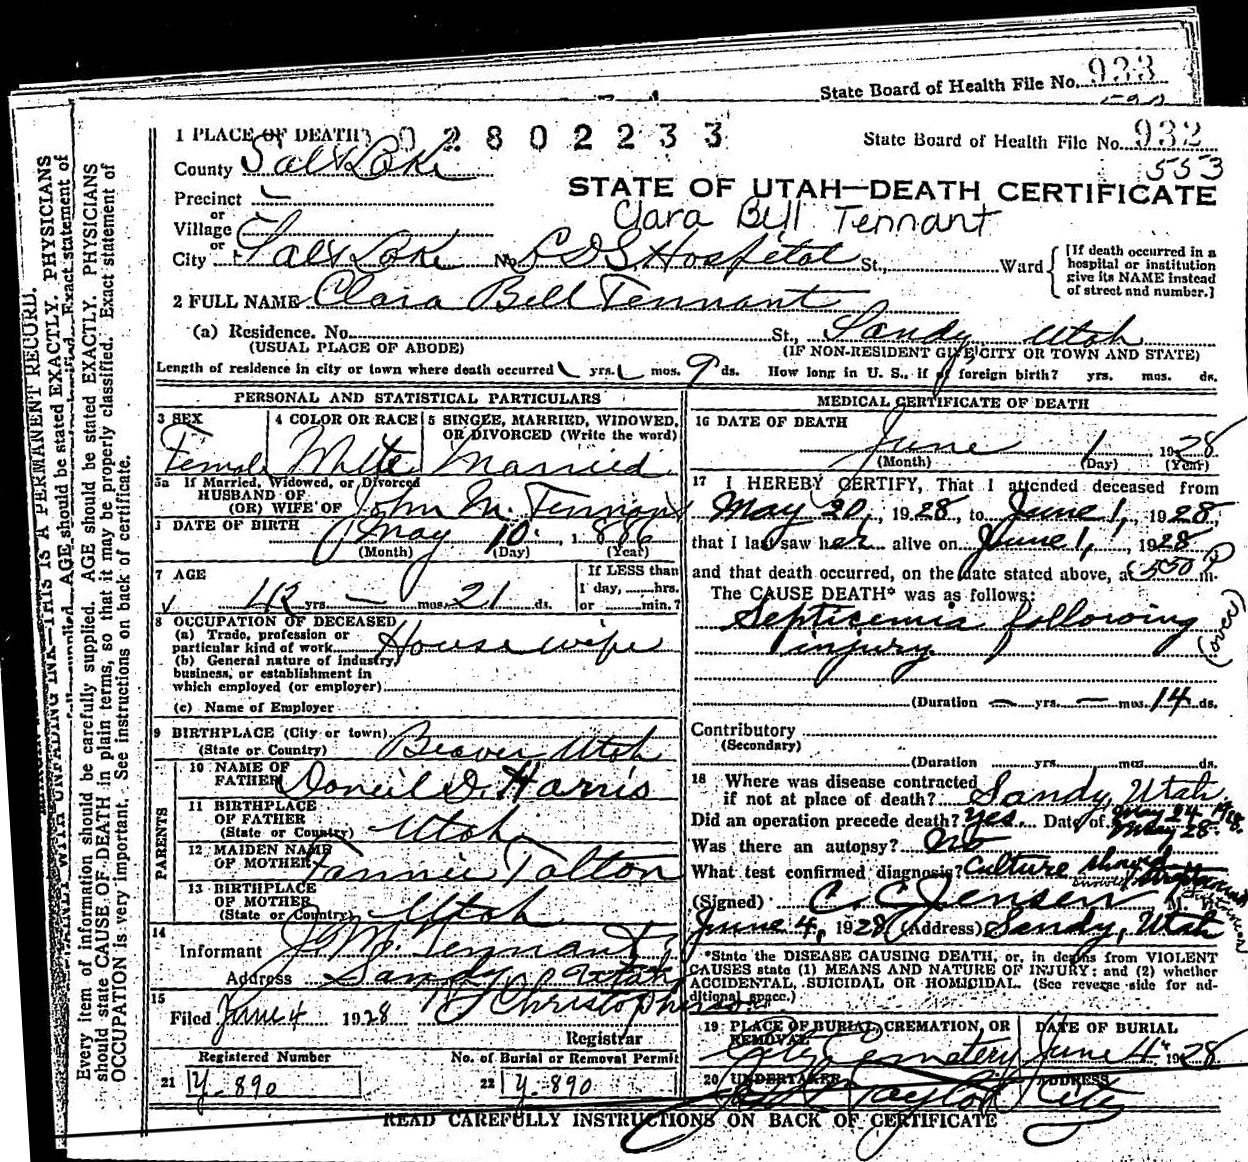 State Board of Health File No. 933
1 PLACE OF DEATH 02802233
State Board of Health File No. 932
553
County Salt Lake
STATE OF UTAH—DEATH CERTIFICATE
Precinct
or
Clara Bell Tennant
Village
or
City Salt Lake No. L D S Hospital St., Ward
[If death occurred in a hospital or institution give its NAME instead of street and number.]
2 FULL NAME Clara Bell Tennant
(a) Residence. No. St., Sandy Utah
(USUAL PLACE OF ABODE) (IF NON-RESIDENT GIVE CITY OR TOWN AND STATE)
Length of residence in city or town where death occurred yrs. mos. 9 ds. How long in U. S., if of foreign birth? yrs. mos. ds.
PERSONAL AND STATISTICAL PARTICULARS
3 SEX Female
4 COLOR OR RACE White
5 SINGLE, MARRIED, WIDOWED, OR DIVORCED (Write the word) Married
5a If Married, Widowed, or Divorced
HUSBAND OF
(OR) WIFE OF John M. Tennant
DATE OF BIRTH May 10. 1886
(Month) (Day) (Year)
7 AGE 42 yrs. — mos. 21 ds.
If LESS than 1 day, hrs. or min.?
8 OCCUPATION OF DECEASED
(a) Trade, profession or particular kind of work Housewife
(b) General nature of industry, business, or establishment in which employed (or employer)
(c) Name of Employer
9 BIRTHPLACE (City or town) Beaver Utah
(State or Country)
PARENTS
10 NAME OF FATHER Daneil D. Harris
11 BIRTHPLACE OF FATHER (State or Country) Utah
12 MAIDEN NAME OF MOTHER Fannie Tolton
13 BIRTHPLACE OF MOTHER (State or Country) Utah
14 Informant J. M. Tennant
Address Sandy Utah
15 Filed June 4 1928 Christopherson
Registrar
Registered Number
21 Y-890
No. of Burial or Removal Permit
22 Y-890
MEDICAL CERTIFICATE OF DEATH
16 DATE OF DEATH
June 1 1928
(Month) (Day) (Year)
17 I HEREBY CERTIFY, That I attended deceased from
May 20, 1928, to June 1, 1928,
that I last saw her alive on June 1, 1928
and that death occurred, on the date stated above, at 550 P m.
The CAUSE DEATH* was as follows:
Septicemia following
injury
(over)
(Duration — yrs. — mos. 14 ds.
Contributory
(Secondary)
(Duration yrs. mos. ds.
18 Where was disease contracted
if not at place of death? Sandy, Utah
Did an operation precede death? Yes Date of May 24 1928
May 28.
Was there an autopsy? No
What test confirmed diagnosis? Culture showed
(Signed) C. C. Jensen M. D.
June 4, 1928 (Address) Sandy, Utah
*State the DISEASE CAUSING DEATH, or, in deaths from VIOLENT
CAUSES state (1) MEANS AND NATURE OF INJURY; and (2) whether
ACCIDENTAL, SUICIDAL OR HOMICIDAL. (See reverse side for additional space.)
19 PLACE OF BURIAL, CREMATION, OR REMOVAL City Cemetery
DATE OF BURIAL June 4 1928
20 UNDERTAKER Taylor
ADDRESS City
READ CAREFULLY INSTRUCTIONS ON BACK OF CERTIFICATE
THIS IS A PERMANENT RECORD.
Every item of information should be carefully supplied. AGE should be stated EXACTLY. PHYSICIANS
should state CAUSE OF DEATH in plain terms, so that it may be properly classified. Exact statement of
OCCUPATION is very important. See instructions on back of certificate.